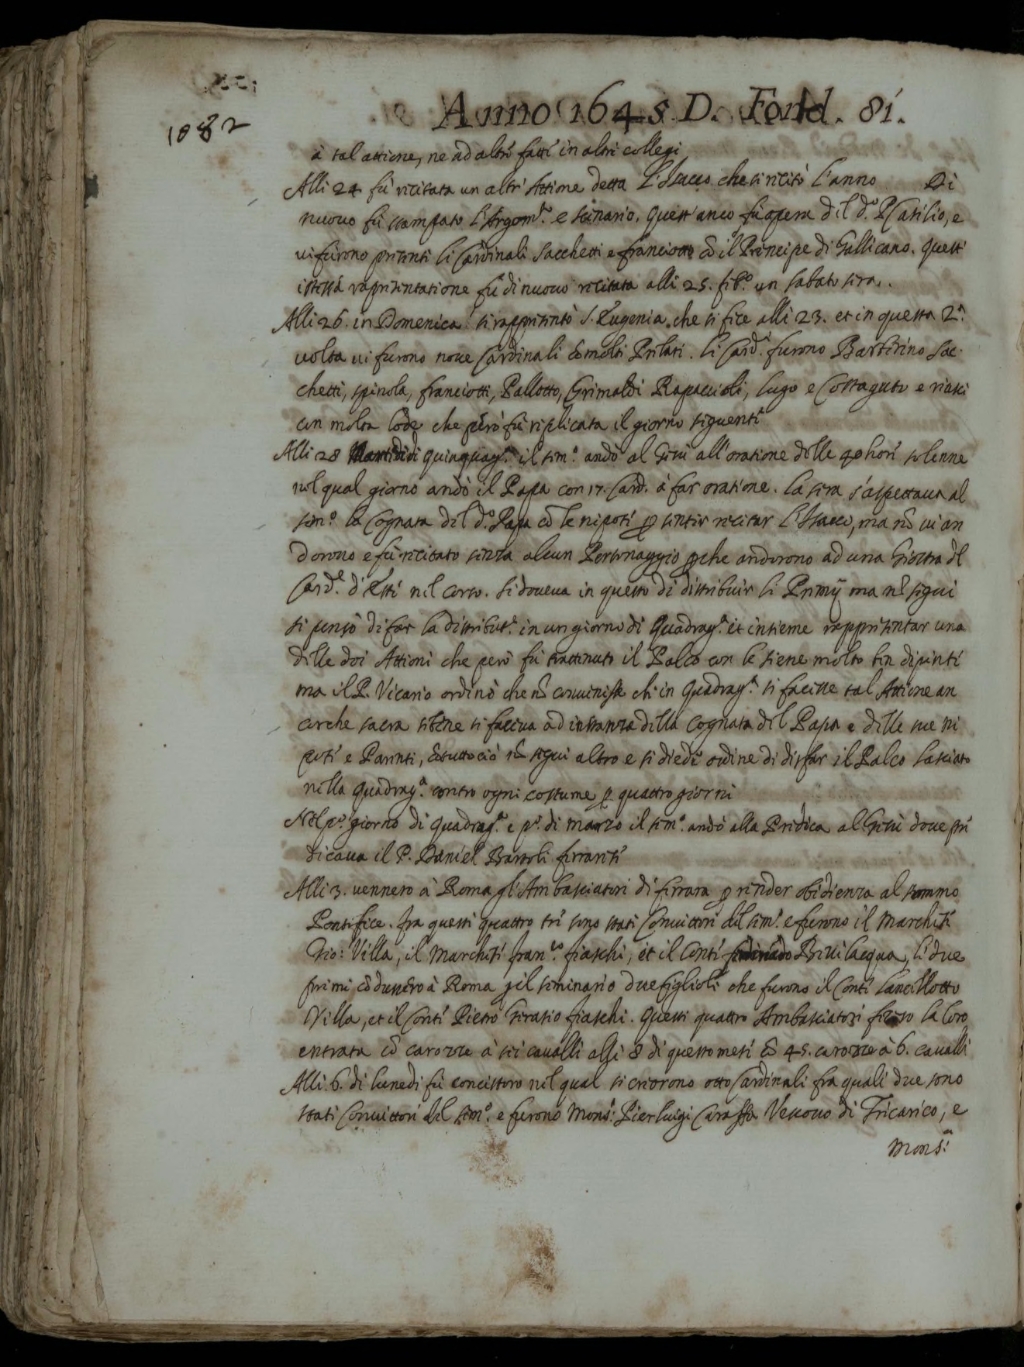 1082
Anno 1645. D. Fond. 81.
à tal attione, ne ad altri fatti in altri collegi
Alli 24 fù recitata un altr' Attione detta L'Isacco che si recitò l'anno Di
nuouo fù stampato l'Argom.to e scenario. Quest'anco fù opera del d.o P. Casilio, e
ui furono presenti li Cardinali Sacchetti e franciotti cō il Prencipe di Gallicano. Questa
istessa rapresentatione fù di nuouo recitata alli 25. feb.o un sabato sera.
Alli 26. in Domenica si rappresentò S. Eugenia che si fece alli 23. et in questa 2.a
uolta ui furono noue Cardinali & molti Prelati. li Card.i furono Barberino Sac-
chetti, spinola, franciotti, Pallotto, Grimaldi Rapaccioli, lugo e Costaguto e riuscì
con molta lode che però fù replicata il giorno seguente
Alli 28 Martedi di quinquag.a il sem.o andò al Giesù all'oratione delle 40 hore solenne
nel qual giorno andò il Papa con 17. Card.i à far oratione. La sera s'aspettaua al
sem.o la Cognata del d.o Papa cō le nipoti p sentir recitar L'Isacco, ma nō ui an
dorono e fù recitato senza alcun Personaggio pche andorono ad una Giostra del
Card.e d'Este nel corso. Si doueua in questo dì distribuir li Premij ma nō seguì
si pensò di far la distribut.e in un giorno di Quadrag.a et insieme rappresentar una
delle doi Attioni che però fù trattenuto il Palco con le scene molto ben dipinte
ma il P. Vicario ordinò che nō conuenisse che in Quadrag.a si facesse tal Attione an
corche sacra sebene si faceua ad instanza della Cognata del Papa e delle sue ni
poti e Parenti, & tutto ciò nō seguì altro e si diede ordine di disfar il Palco lasciato
nella Quadrag.a contro ogni costume p quattro giorni
Nel p.o giorno di Quadrag.a e p.o di marzo il sem.o andò alla Predica al Giesù doue pre
dicaua il P. Daniel Bartoli ferrarese
Alli 3. vennero à Roma gl'Ambasciatori di ferrara p render obidienza al sommo
Pontefice. fra questi quattro tre sono stati Conuittori del sem.o e furono il Marchese
Gio: Villa, il Marchese fran.co fiaschi, et il Conte Beuilacqua, li due
primi cōdussero à Roma pil seminario due figlioli che furono il Conte Lancellotto
Villa, et il Conte Pietro Horatio fiaschi. Questi quattro Ambasciatori fecero la loro
entrata cō carozze à sei cavalli alli 8 di questo mese cō 45. carozze à 6. cavalli
Alli 6. di lunedi fù concistoro nel qual si criorono otto Cardinali fra quali due sono
stati Conuittori del sem.o e furono Mons.r Pierluigi Caraffa Vescouo di Tricarico, e
Mons.r